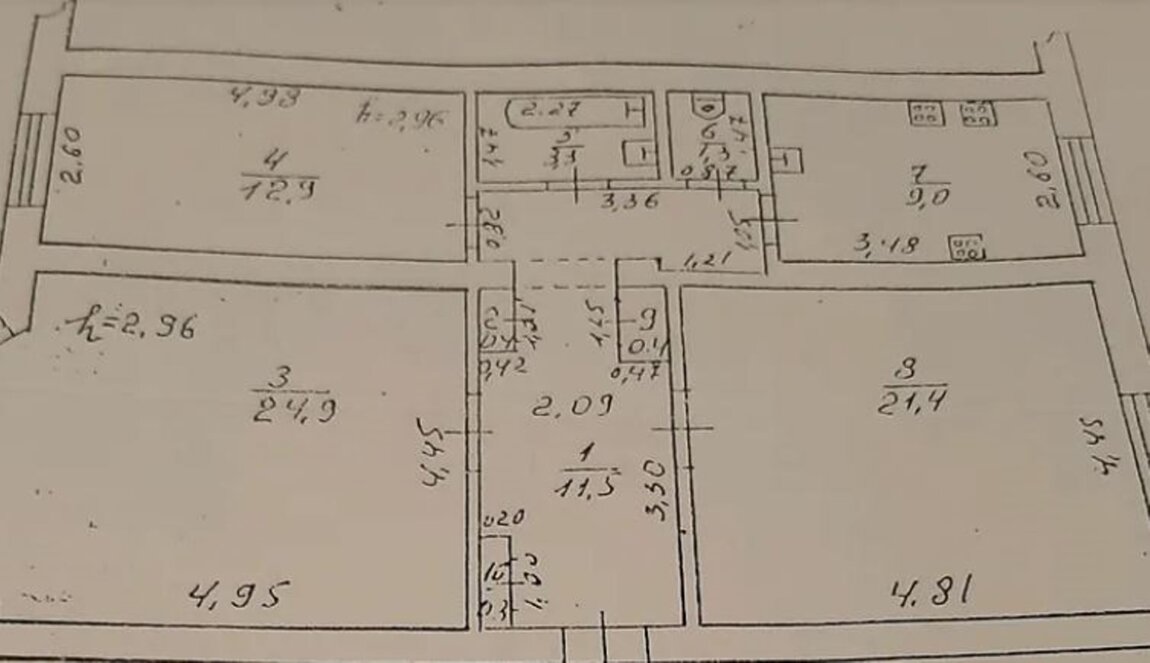 4,98
h=2,96
2.60
4
12.9
2.27
1,47
5
3,3
6
1,3
1,47
0,87
7
9,0
2,60
3,36
0,92
1,05
3,48
1,21
h=2.96
2
0,4
1,21
0,42
1,25
9
0.4
0,47
3
24,9
4,45
4,95
2.09
1
11,5
3,30
0,20
10
0,3
1,00
8
21,4
4,45
4.81